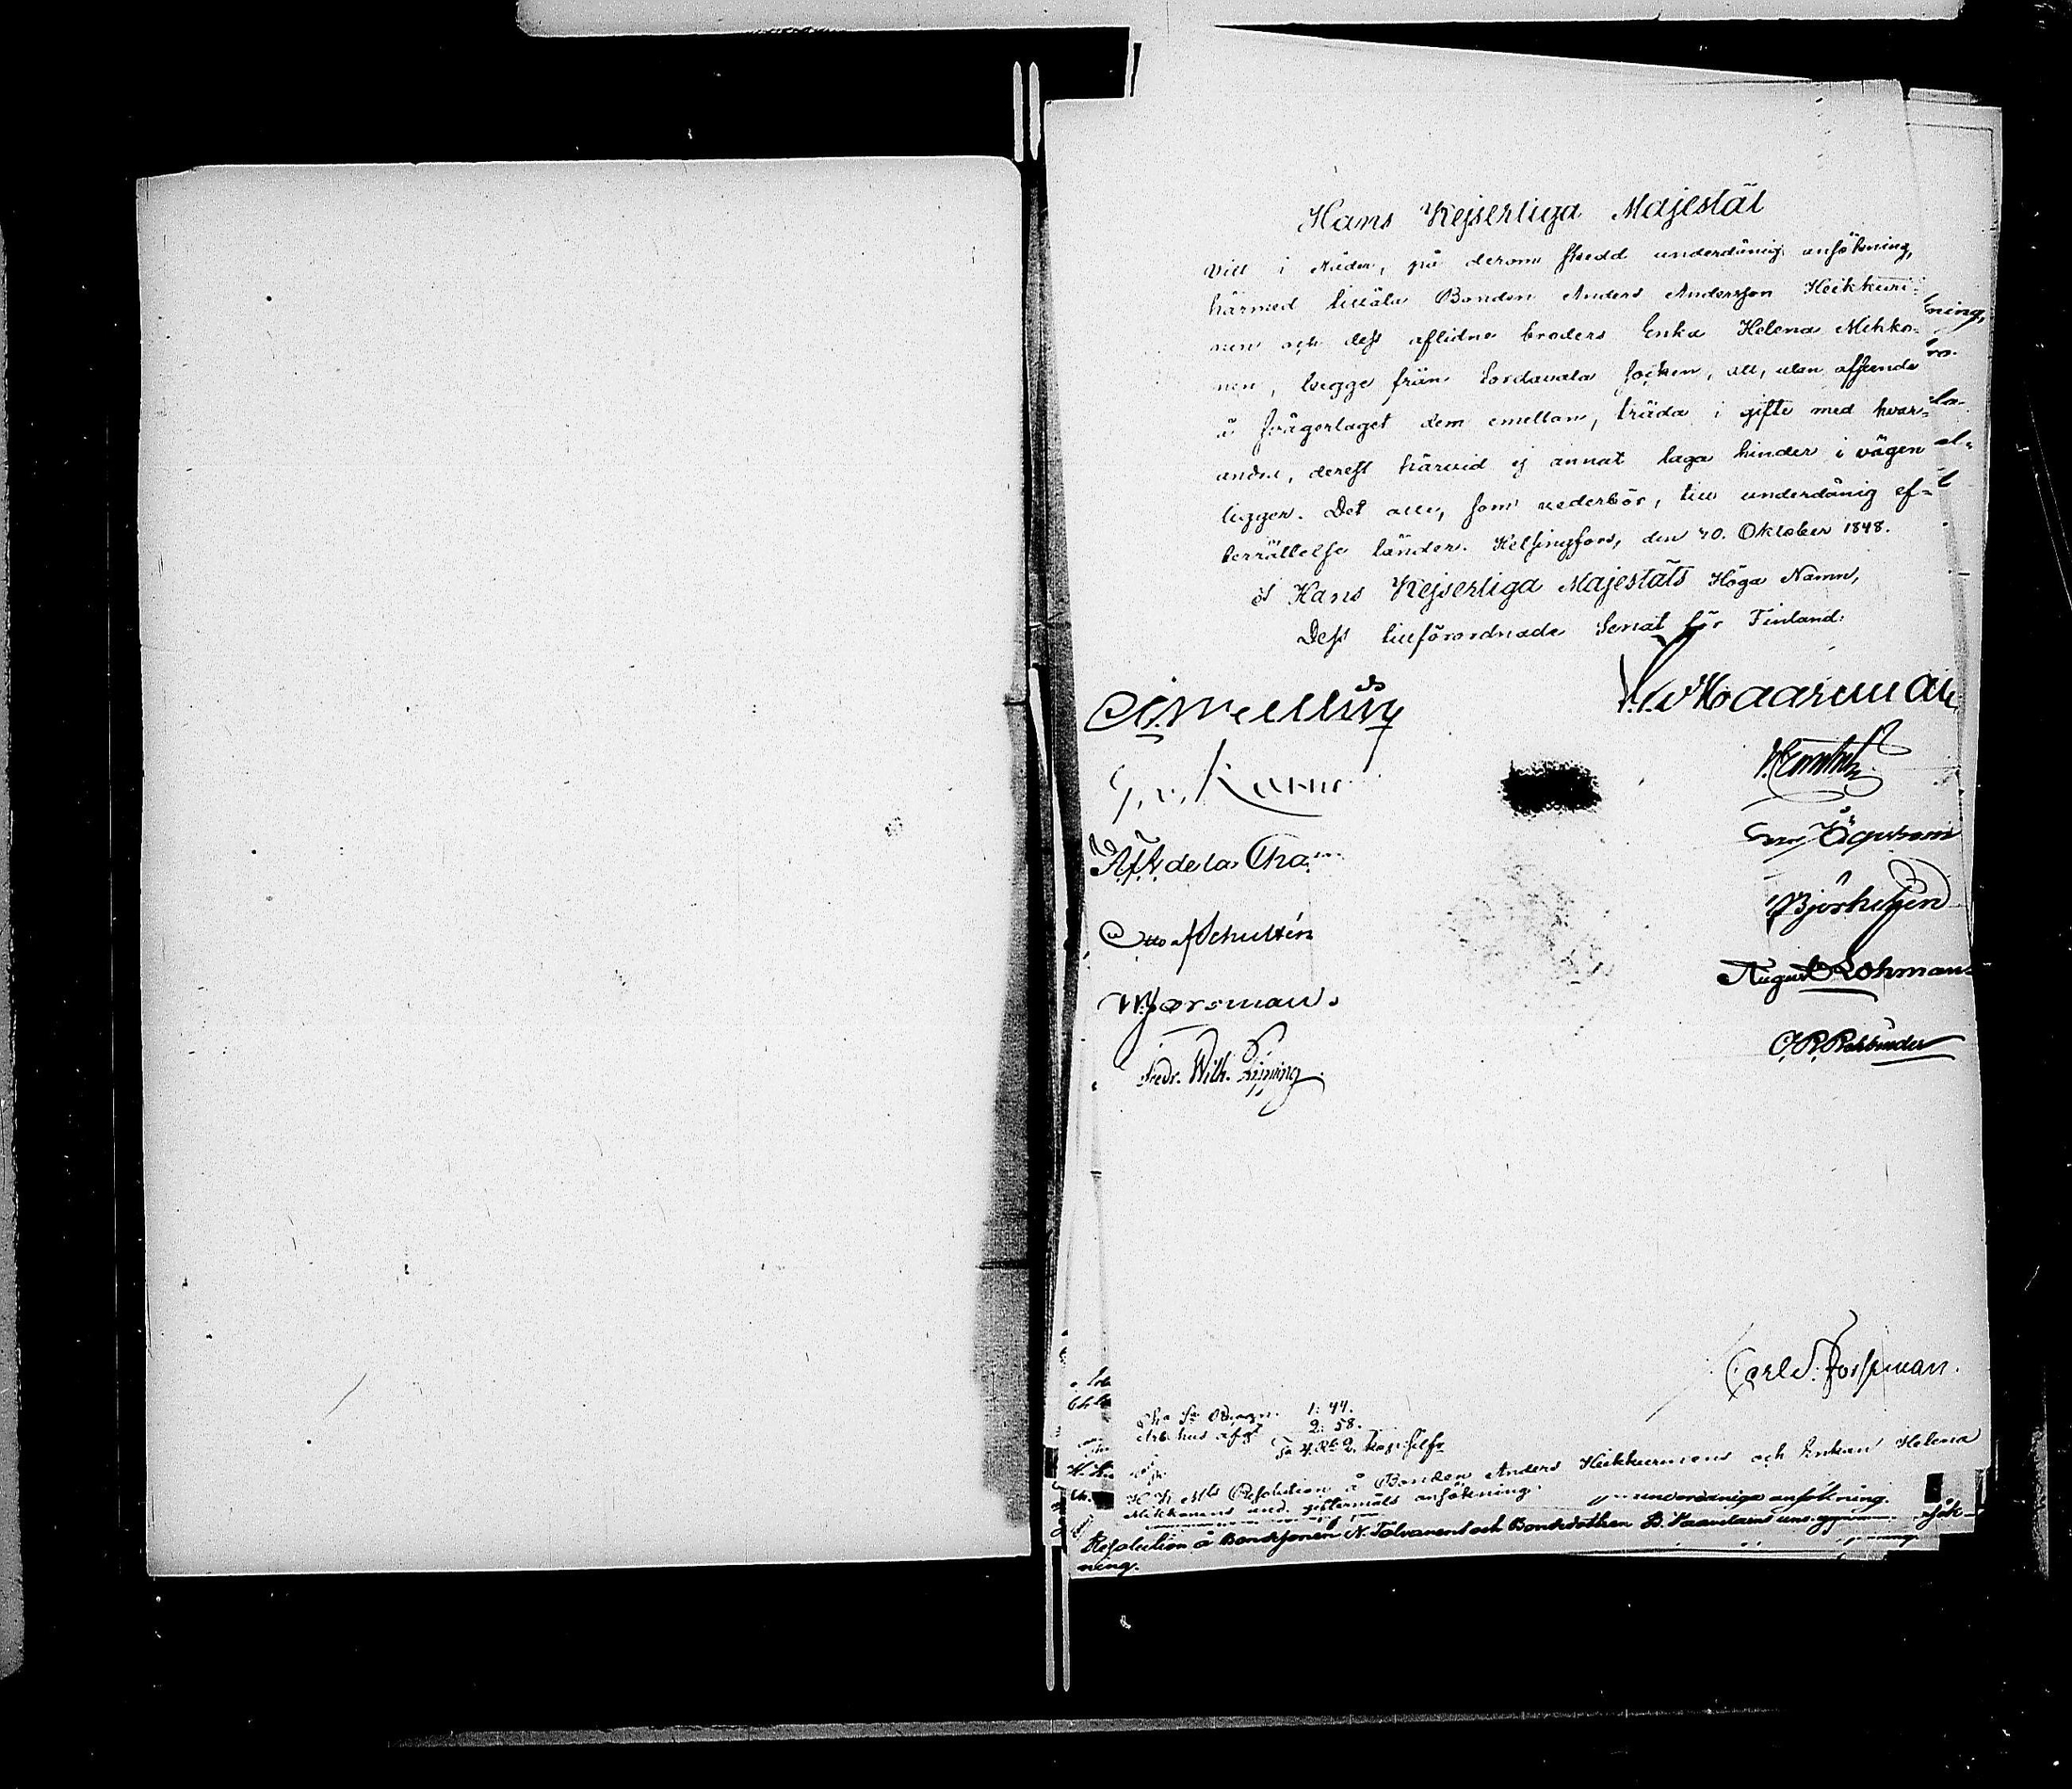 Hans Kejserliga Majestät
vill i Nåder, på derom skedd underdånig ansökning,
härmed tillåta Bonden Anders Andersson Heikkuri-
nen och dess aflidne broders Enka Helena Mihko-
nen, begge från Sordavala socken, att, utan afseende
å svågerlaget dem emellan, träda i gifte med hvar-
andra, derest härvid ej annat laga hinder i vägen
ligger. Det alle, som vederbör, till underdånig ef-
terrättelse länder. Helsingfors, den 20. Oktober 1848.
I Hans Kejserliga Majestäts Höga Namn,
Dess tillförordnade Senat för Finland:
Haartman
G. v.
de la Cha
Björksten
Otto af Schultén
August Lohman
O. R. Rehbinder
Fredr. Wilh. Pipping
Carl Forsman.
1: 44.
Arb. hus afgt 2: 58.
Sa 4. Rb 2 kop. silfr
H. K. Mts Resolution å Bonden Anders Heikkurinens och Enkan Helena
Mihkonens und. giftermåls ansökning.
underdåniga ansökning.
Resolution å Bondesonen N. Tolvanens och Bondedottren B.
ning.